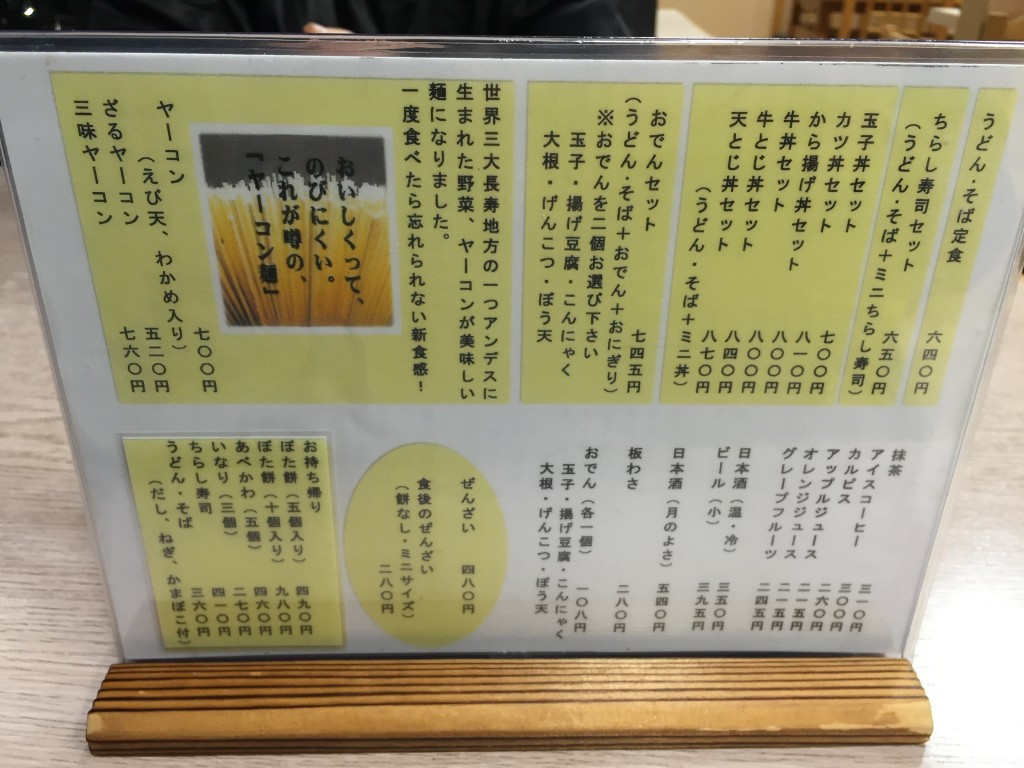 うどん・そば定食 六四〇円
ちらし寿司セット 六五〇円
（うどん・そば＋ミニちらし寿司）
玉子丼セット 七〇〇円
カツ丼セット 八一〇円
から揚げ丼セット 八〇〇円
牛丼セット 八〇〇円
牛とじ丼セット 八四〇円
天とじ丼セット 八七〇円
（うどん・そば＋ミニ丼）
おでんセット 七四五円
（うどん・そば＋おでん＋おにぎり）
※おでんを二個お選び下さい
玉子・揚げ豆腐・こんにゃく
大根・げんこつ・ぼう天
世界三大長寿地方の一つアンデスに
生まれた野菜、ヤーコンが美味しい
麺になりました。
一度食べたら忘れられない新食感！
おいしくって、
のびにくい。
これが噂の、
「ヤーコン麺」
ヤーコン 七〇〇円
（えび天、わかめ入り）
ざるヤーコン 五二〇円
三味ヤーコン 七六〇円
抹茶 三一〇円
アイスコーヒー 三〇〇円
カルピス 二六〇円
アップルジュース 二一五円
オレンジジュース 二一五円
グレープフルーツ 二四五円
日本酒（温・冷） 三五〇円
ビール（小） 三九五円
日本酒（月のよさ） 五四〇円
板わさ 二八〇円
おでん（各一個） 一〇八円
玉子・揚げ豆腐・こんにゃく
大根・げんこつ・ぼう天
ぜんざい 四八〇円
食後のぜんざい
（餅なし・ミニサイズ）
二八〇円
お持ち帰り
ぼた餅（五個入り） 四九〇円
ぼた餅（十個入り） 九八〇円
あべかわ（五個） 四六〇円
いなり（三個） 二七〇円
ちらし寿司 四一〇円
うどん・そば 三六〇円
（だし、ねぎ、かまぼこ付）